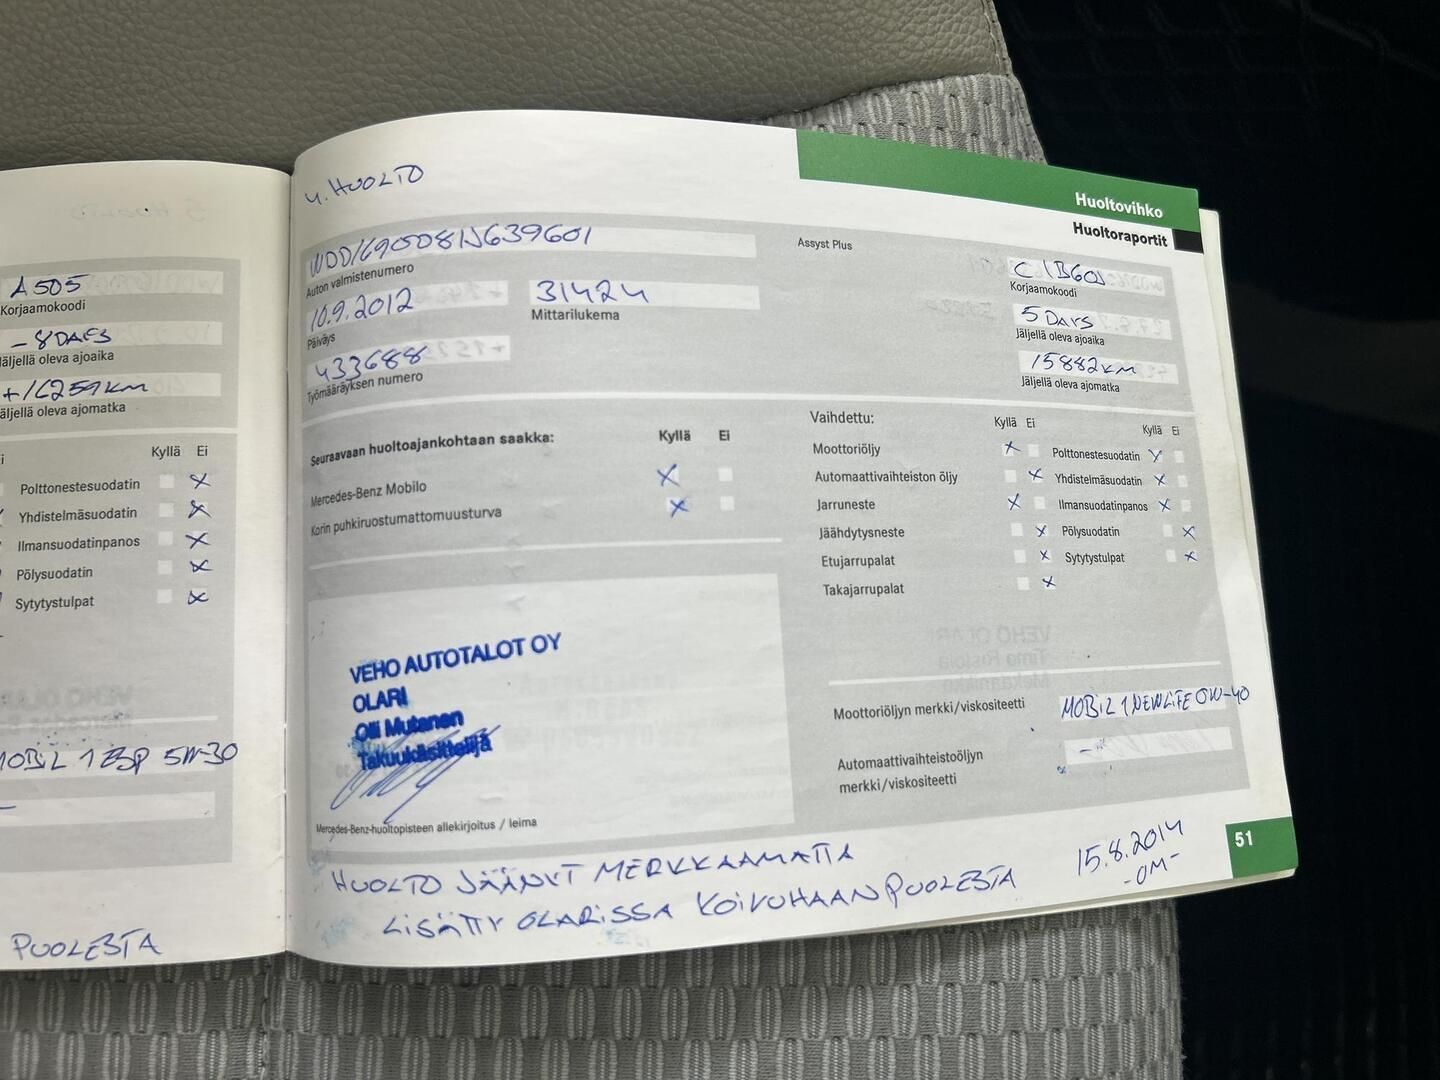 A505
Korjaamokoodi
- 8 DAYS
Jäljellä oleva ajoaika
+16259 KM
Jäljellä oleva ajomatka
Kyllä Ei
Polttonestesuodatin
Yhdistelmäsuodatin
Ilmansuodatinpanos
Pölysuodatin
Sytytystulpat
MOBIL 1 ESP 5W-30
-
PUOLESTA
4. HUOLTO
Huoltovihko
Huoltoraportit
Auton valmistenumero
10.9.2012
Päiväys
31424
Mittarilukema
433688
Työmääräyksen numero
Assyst Plus
Korjaamokoodi
5 DAYS
Jäljellä oleva ajoaika
15882 KM
Jäljellä oleva ajomatka
Seuraavaan huoltoajankohtaan saakka: Kyllä Ei
Mercedes-Benz Mobilo X
Korin puhkiruostumattomuusturva X
Vaihdettu: Kyllä Ei Kyllä Ei
Moottoriöljy X Polttonestesuodatin X
Automaattivaihteiston öljy X Yhdistelmäsuodatin X
Jarruneste X Ilmansuodatinpanos X
Jäähdytysneste X Pölysuodatin X
Etujarrupalat X Sytytystulpat X
Takajarrupalat X
VEHO AUTOTALOT OY
OLARI
Olli Mutanen
Takuukäsittelijä
Mercedes-Benz-huoltopisteen allekirjoitus / leima
Moottoriöljyn merkki/viskositeetti MOBIL 1 NEWLIFE 0W-40
Automaattivaihteistoöljyn
merkki/viskositeetti -
HUOLTO JÄÄNYT MERKKAAMATTA
LISÄTTY OLARISSA KOIVUHAAN PUOLESTA
15.8.2014
-OM-
51